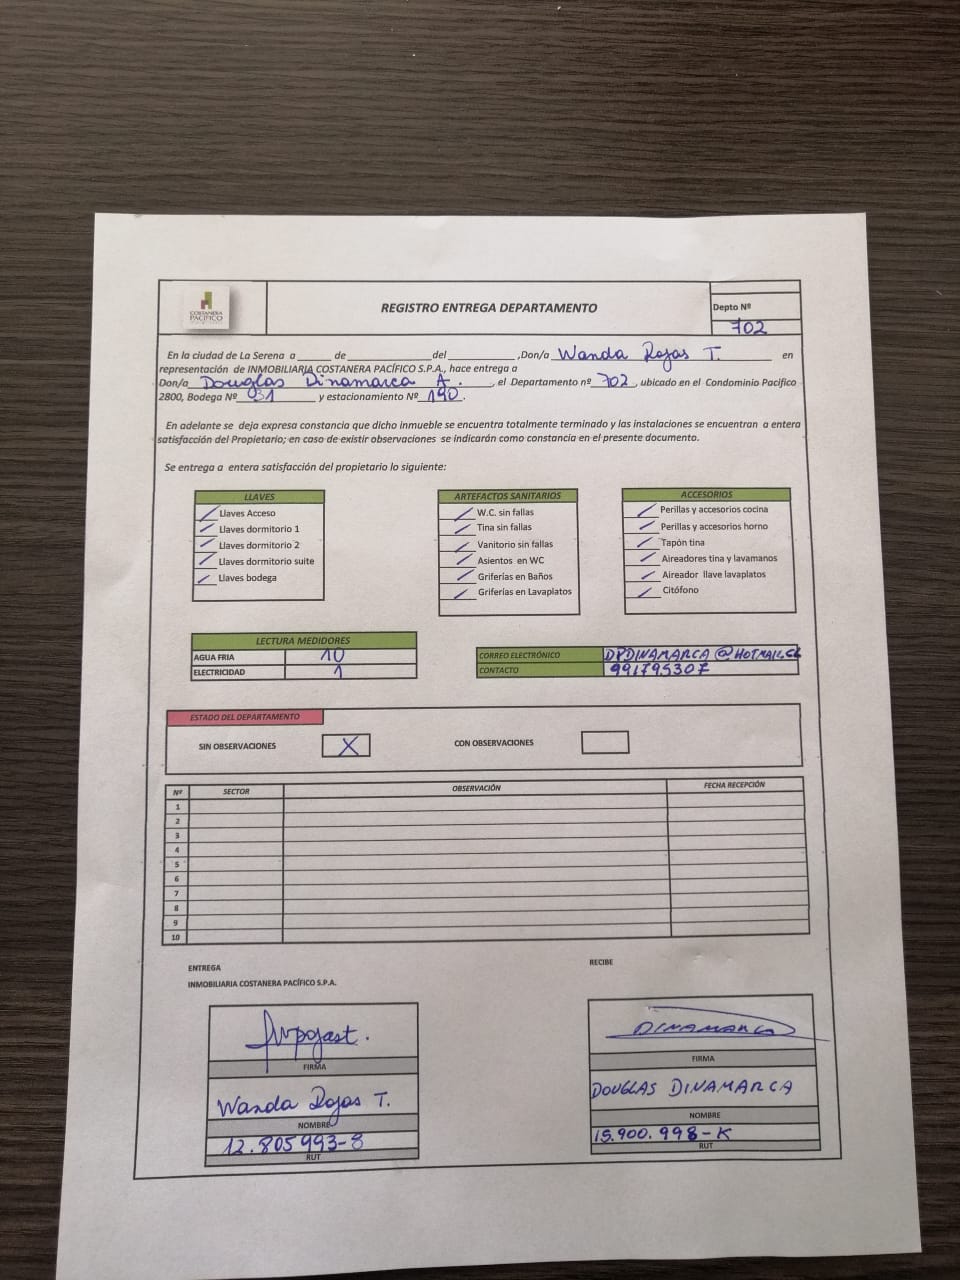 COSTANERA
PACÍFICO
REGISTRO ENTREGA DEPARTAMENTO
Depto Nº
702
En la ciudad de La Serena a______ de________________del____________,Don/a Wanda Rojas T. en
representación de INMOBILIARIA COSTANERA PACÍFICO S.P.A., hace entrega a
Don/a Douglas Dinamarca A. , el Departamento nº 702, ubicado en el Condominio Pacífico
2800, Bodega Nº 031 y estacionamiento Nº 190.
En adelante se deja expresa constancia que dicho inmueble se encuentra totalmente terminado y las instalaciones se encuentran a entera
satisfacción del Propietario; en caso de existir observaciones se indicarán como constancia en el presente documento.
Se entrega a entera satisfacción del propietario lo siguiente:
LLAVES
Llaves Acceso
Llaves dormitorio 1
Llaves dormitorio 2
Llaves dormitorio suite
Llaves bodega
ARTEFACTOS SANITARIOS
W.C. sin fallas
Tina sin fallas
Vanitorio sin fallas
Asientos en WC
Griferías en Baños
Griferías en Lavaplatos
ACCESORIOS
Perillas y accesorios cocina
Perillas y accesorios horno
Tapón tina
Aireadores tina y lavamanos
Aireador llave lavaplatos
Citófono
LECTURA MEDIDORES
AGUA FRIA 10
ELECTRICIDAD 1
CORREO ELECTRÓNICO DPDINAMARCA@HOTMAIL.CL
CONTACTO 991795307
ESTADO DEL DEPARTAMENTO
SIN OBSERVACIONES X CON OBSERVACIONES
Nº SECTOR OBSERVACIÓN FECHA RECEPCIÓN
1
2
3
4
5
6
7
8
9
10
ENTREGA
INMOBILIARIA COSTANERA PACÍFICO S.P.A.
FIRMA
Wanda Rojas T.
NOMBRE
12.805993-8
RUT
RECIBE
DINAMARCA
FIRMA
DOUGLAS DINAMARCA
NOMBRE
15.900.998-K
RUT